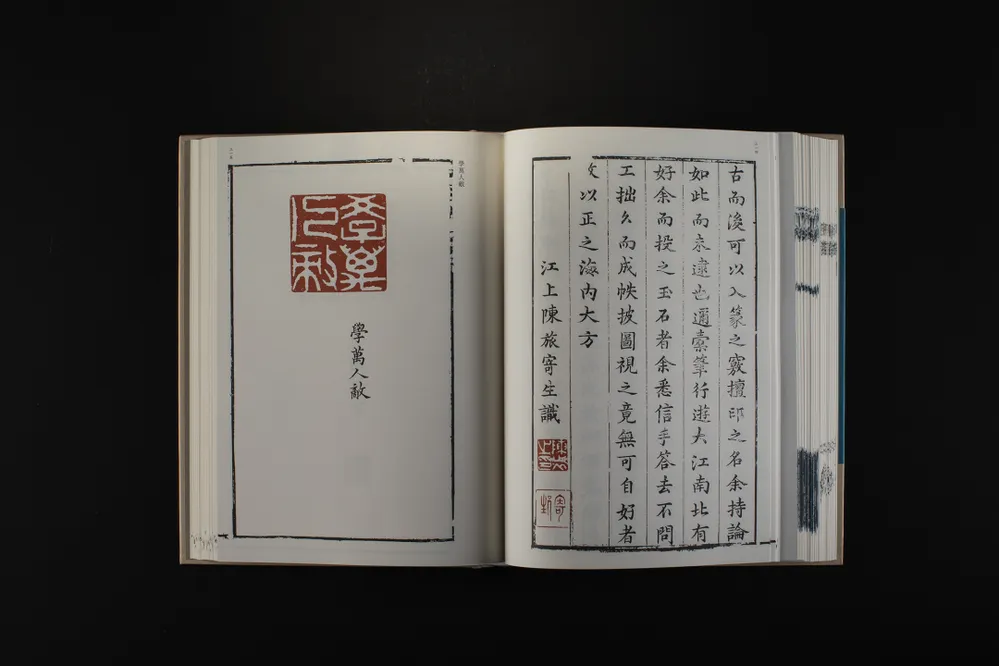 古而後可以入篆之竅擅印之名余持論
如此而未逮也邇橐筆行遊大江南北有
好余而投之玉石者余悉信手答去不問
工拙久而成帙披圖視之竟無可自好者
以正之海内大方
江上陳旅寄生識
學萬人敵
學萬人敵
學萬人敵